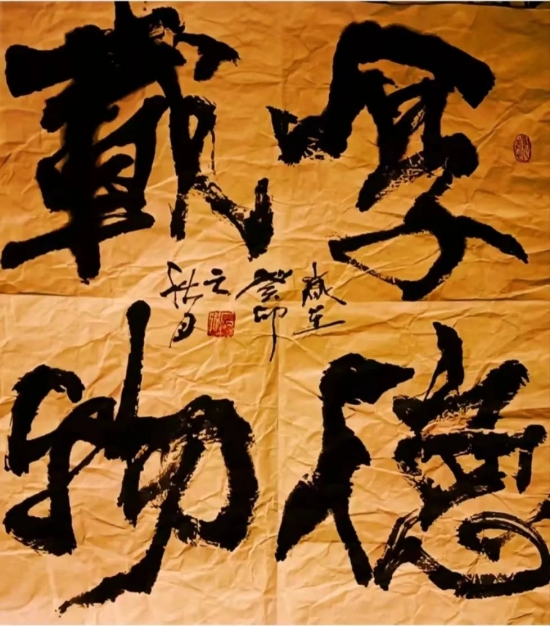 厚德
載物
歲在
癸卯
之
秋月